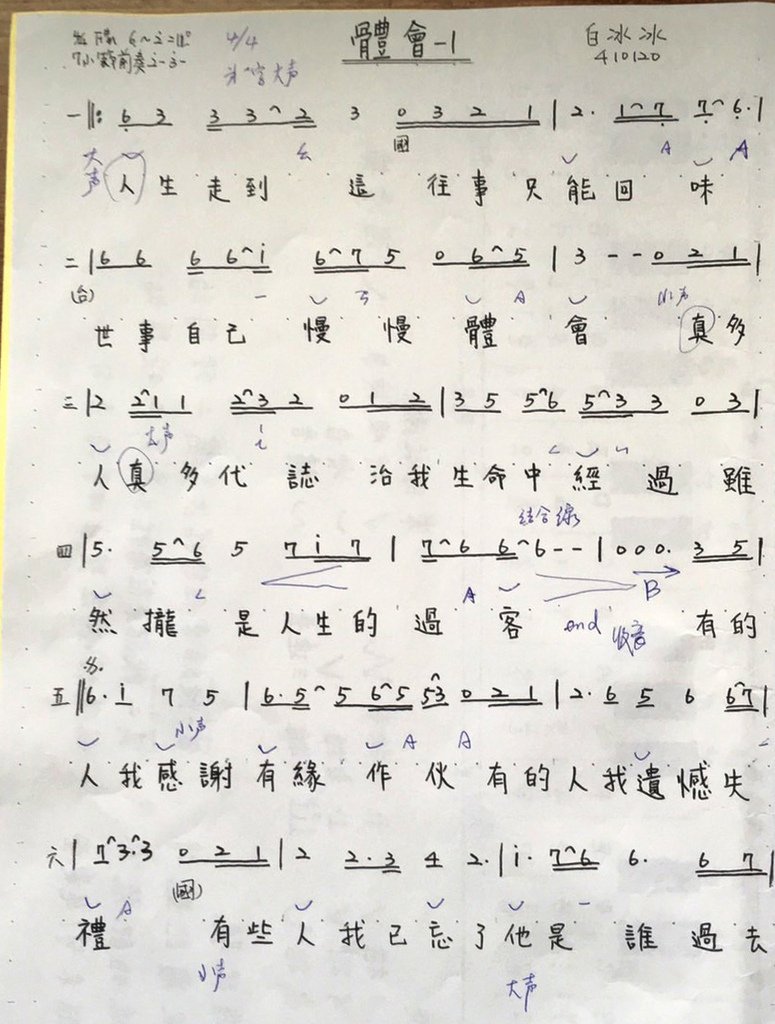 體會-1
白冰冰
4/4
410120
7小節前奏
大声
一 ‖: 6 3 3 3 2 3 0 3 2 1 | 2· 1 7 7 6· |
國
大声 A A
人生走到這往事只能回味
二 | 6 6 6 6 i 6 7 5 0 6 5 | 3 - - 0 2 1 |
(台) A 小声
世事自己慢慢體會真多
三 | 2 2 1 1 2 3 2 0 1 2 | 3 5 5 6 5 3 3 0 3 |
大声
人真多代誌治我生命中經過雖
結合線
四 | 5· 5 6 5 7 i 7 | 7 6 6 6 - - | 0 0 0· 3 5 |
A B
然攏是人生的過客 end 收音 有的
五 ‖ 6· i 7 5 | 6· 5 5 6 5 5 3 0 2 1 | 2· 6 5 6 6 7 |
小声 A A
人我感謝有緣作伙有的人我遺憾失
六 | 7 3· 3 0 2 1 | 2 2· 3 4 2· | i· 7 6 6· 6 7 |
A (國)
禮有些人我已忘了他是誰過去
小声 大声